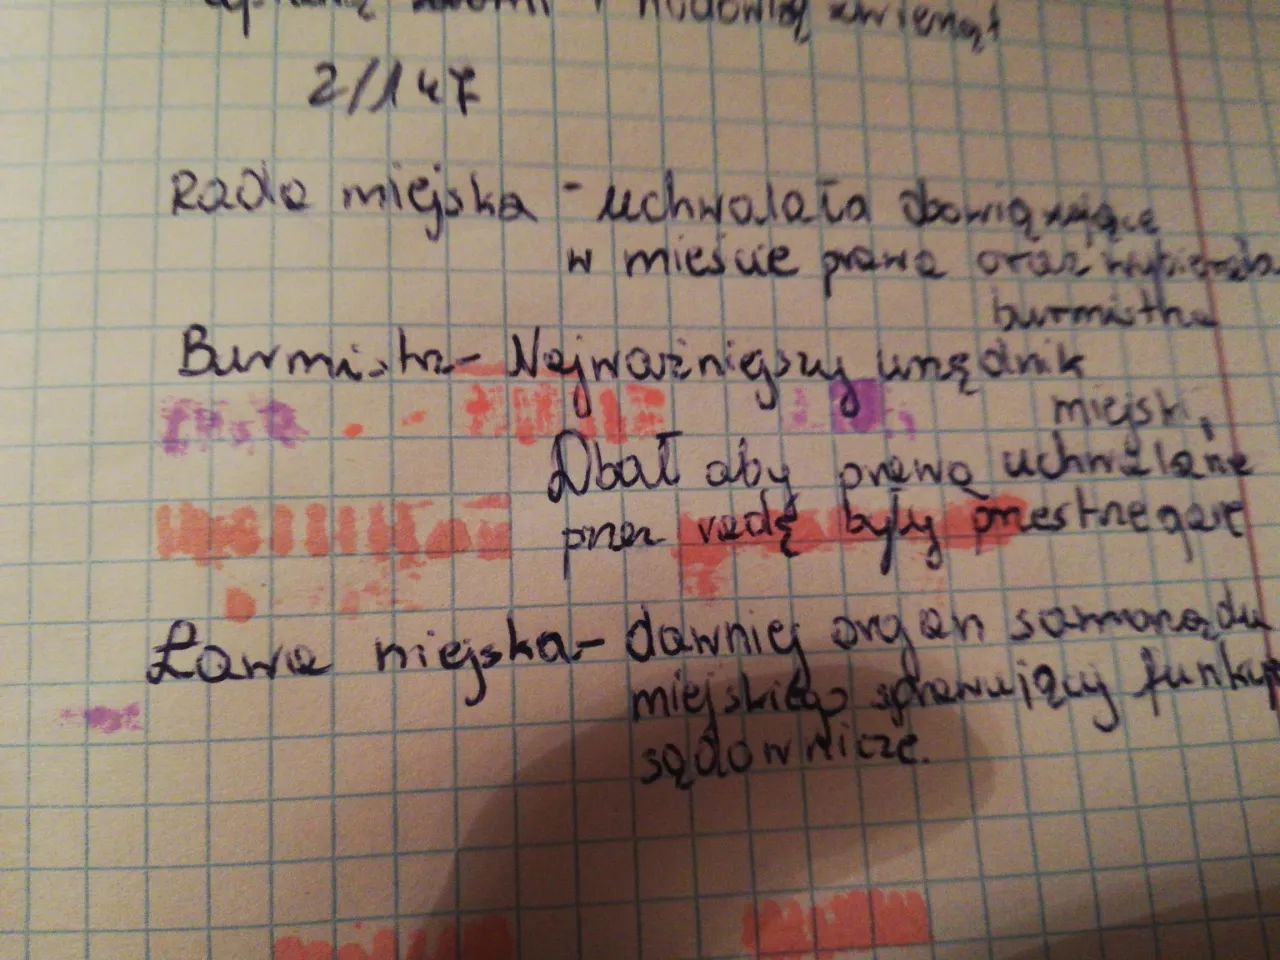 i hodowlą zwierząt
2/147
Rada miejska - uchwalała obowiązujące
w mieście prawa oraz wybierała
burmistrza
Burmistrz - Najważniejszy urzędnik
miejski,
Dbał aby prawa uchwalane
przez radę były przestrzegane
Ława miejska - dawniej organ samorządu
miejskiego sprawujący funkcje
sądownicze.